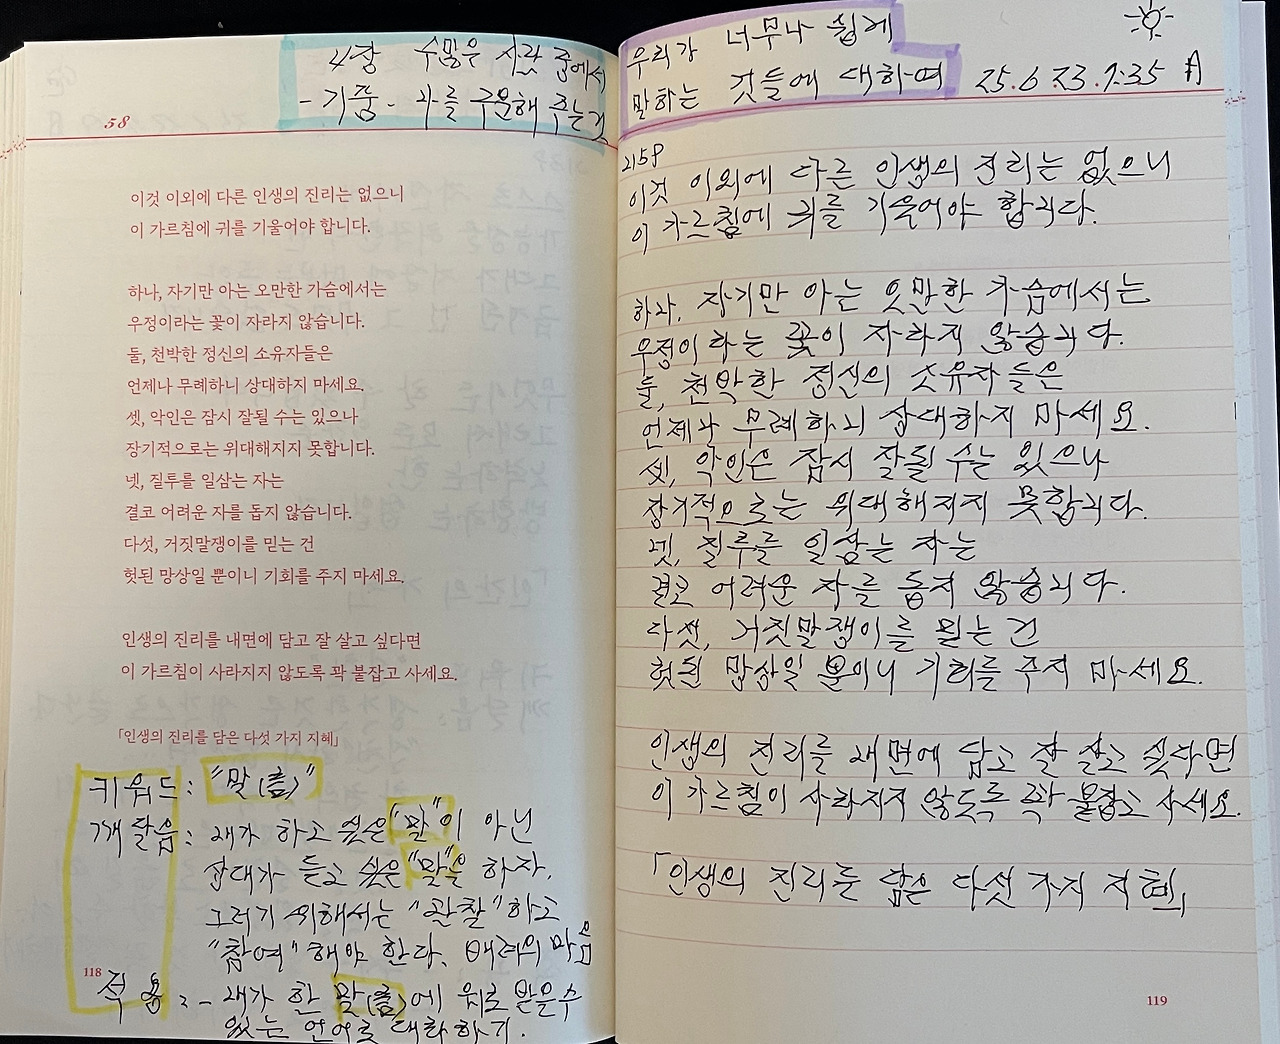 4장 수많은 사람 중에서
- 기품 - 나를 구원해 주는 것
58
이것 이외에 다른 인생의 진리는 없으니
이 가르침에 귀를 기울여야 합니다.
하나, 자기만 아는 오만한 가슴에서는
우정이라는 꽃이 자라지 않습니다.
둘, 천박한 정신의 소유자들은
언제나 무례하니 상대하지 마세요.
셋, 악인은 잠시 잘될 수는 있으나
장기적으로는 위대해지지 못합니다.
넷, 질투를 일삼는 자는
결코 어려운 자를 돕지 않습니다.
다섯, 거짓말쟁이를 믿는 건
헛된 망상일 뿐이니 기회를 주지 마세요.
인생의 진리를 내면에 담고 잘 살고 싶다면
이 가르침이 사라지지 않도록 꽉 붙잡고 사세요.
「인생의 진리를 담은 다섯 가지 지혜」
키워드 : "말(言)"
깨달음 : 내가 하고 싶은 "말"이 아닌
상대가 듣고 싶은 "말"을 하자.
그러기 위해서는 "관찰"하고
"참여"해야 한다. 배려의 마음
적용 : - 내가 한 말(言)에 위로 받을 수
있는 언어로 대화하기.
118
우리가 너무나 쉽게
말하는 것들에 대하여
25.6.23.7:35 A
215P
이것 이외에 다른 인생의 진리는 없으니
이 가르침에 귀를 기울어야 합니다.
하나, 자기만 아는 오만한 가슴에서는
우정이라는 꽃이 자라지 않습니다.
둘, 천박한 정신의 소유자들은
언제나 무례하니 상대하지 마세요.
셋, 악인은 잠시 잘될 수는 있으나
장기적으로는 위대해지지 못합니다.
넷, 질투를 일삼는 자는
결코 어려운 자를 돕지 않습니다.
다섯, 거짓말쟁이를 믿는 건
헛된 망상일 뿐이니 기회를 주지 마세요.
인생의 진리를 내면에 담고 잘 살고 싶다면
이 가르침이 사라지지 않도록 꽉 붙잡고 사세요.
「인생의 진리를 담은 다섯 가지 지혜」
119